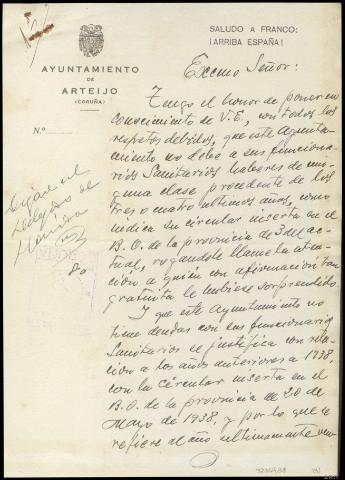 SALUDO A FRANCO:
¡ARRIBA ESPAÑA!
AYUNTAMIENTO
DE
ARTEIJO
(CORUÑA)
N.º
Excmo Señor:
Tengo el honor de poner en
conocimiento de V.E, con todos los
respetos debidos, que este Ayunta-
miento no debe a sus funciona-
rios Sanitarios haberes de nin-
guna clase procedente de los
tres o cuatro ultimos años, como
indica su circular inserta en el
B.O. de la provincia de 3 del ac-
tual, rogandole llame la aten-
cion a quien con afirmacion tan
gratuita le hubiere sorprendido.
Y que este Ayuntamiento no
tiene deudas con sus funcionarios
Sanitarios se justifica con rela-
cion a los años anteriores a 1938,
con la circular inserta en el
B.O. de la provincia de 20 de
Mayo de 1938, y por lo que se
refiere al año ultimamente ven-